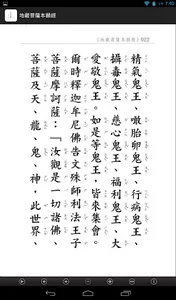 7:40
地藏菩薩本願經
《地藏菩薩本願經》022
精氣鬼王、噉胎卵鬼王、行病鬼王、
攝毒鬼王、慈心鬼王、福利鬼王、大
愛敬鬼王。如是等鬼王，皆來集會。
爾時釋迦牟尼佛告文殊師利法王子
菩薩摩訶薩：「汝觀是一切諸佛、
菩薩及天、龍、鬼、神，此世界、